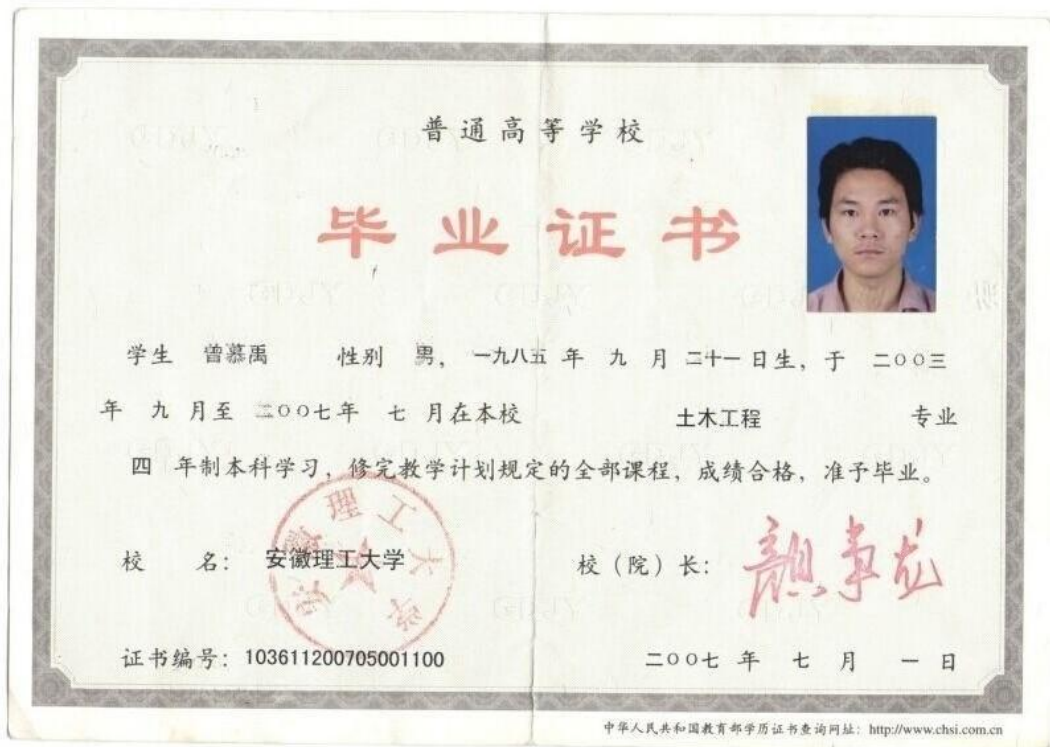 普通高等学校
毕业证书
学生 曾慕禹 性别 男，一九八五 年 九 月 二十一 日生，于 二〇〇三
年 九 月至 二〇〇七年 七 月在本校 土木工程 专业
四 年制本科学习，修完教学计划规定的全部课程，成绩合格，准予毕业。
校 名：安徽理工大学
安徽理工大学
校（院）长：
证书编号：103611200705001100
二〇〇七 年 七 月 一 日
中华人民共和国教育部学历证书查询网址：http://www.chsi.com.cn